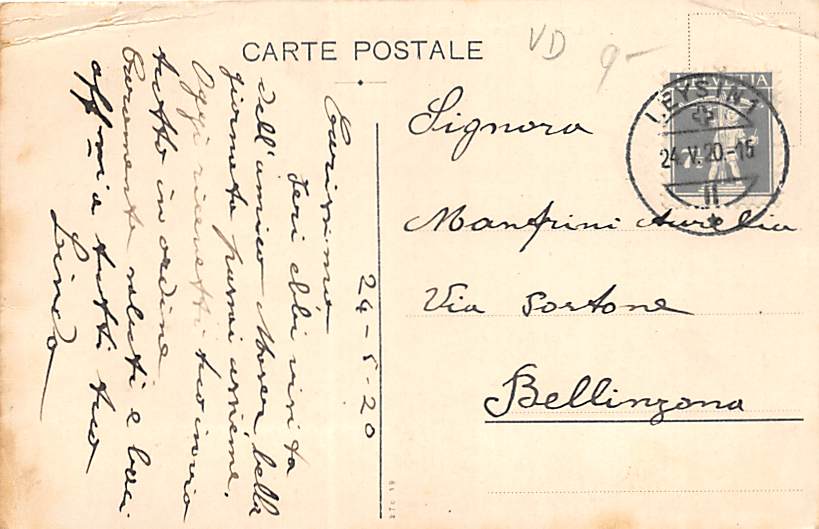 CARTE POSTALE
VD 9-
HELVETIA
LEYSIN 1
24.V.20.-15
7½
Signora
Manfrini Aurelia
Via Sortone
Bellinzona
24-5-20
Carissima
Ieri ebbi visita
dell'amico Moser bella
giornata passai assieme.
Oggi ricevetti tuo invio
tutto in ordine
Caramente saluti e baci
aff.mi a tutti tuo
Lindo